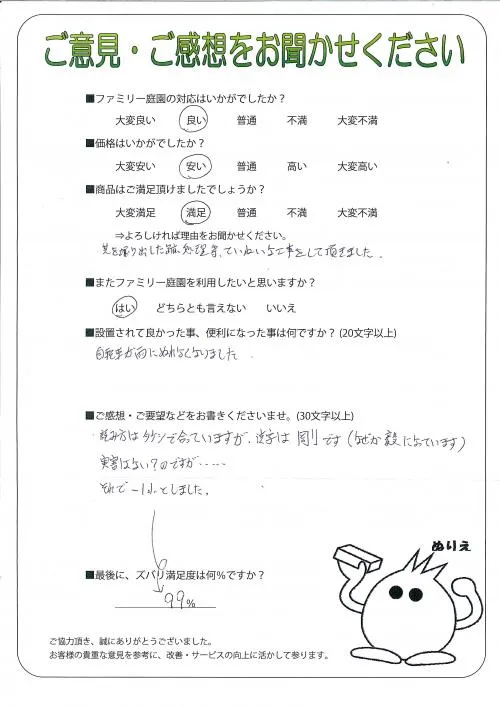 ご意見・ご感想をお聞かせください
■ファミリー庭園の対応はいかがでしたか？
大変良い 良い 普通 不満 大変不満
■価格はいかがでしたか？
大変安い 安い 普通 高い 大変高い
■商品はご満足頂けましたでしょうか？
大変満足 満足 普通 不満 大変不満
⇒よろしければ理由をお聞かせください。
掘り出した 処理等、ていねいな工事をして頂きました。
■またファミリー庭園を利用したいと思いますか？
はい どちらとも言えない いいえ
■設置されて良かった事、便利になった事は何ですか？(20文字以上)
自転車が雨にぬれなくなりました。
■ご感想・ご要望などをお書きくださいませ。(30文字以上)
読み方はタケシで合っていますが、漢字は 剛 です (なぜか 毅 になっています)
実害はない？のですが……
それで −1%としました。
■最後に、ズバリ満足度は何％ですか？
99%
ぬりえ
ご協力頂き、誠にありがとうございました。
お客様の貴重な意見を参考に、改善・サービスの向上に活かして参ります。